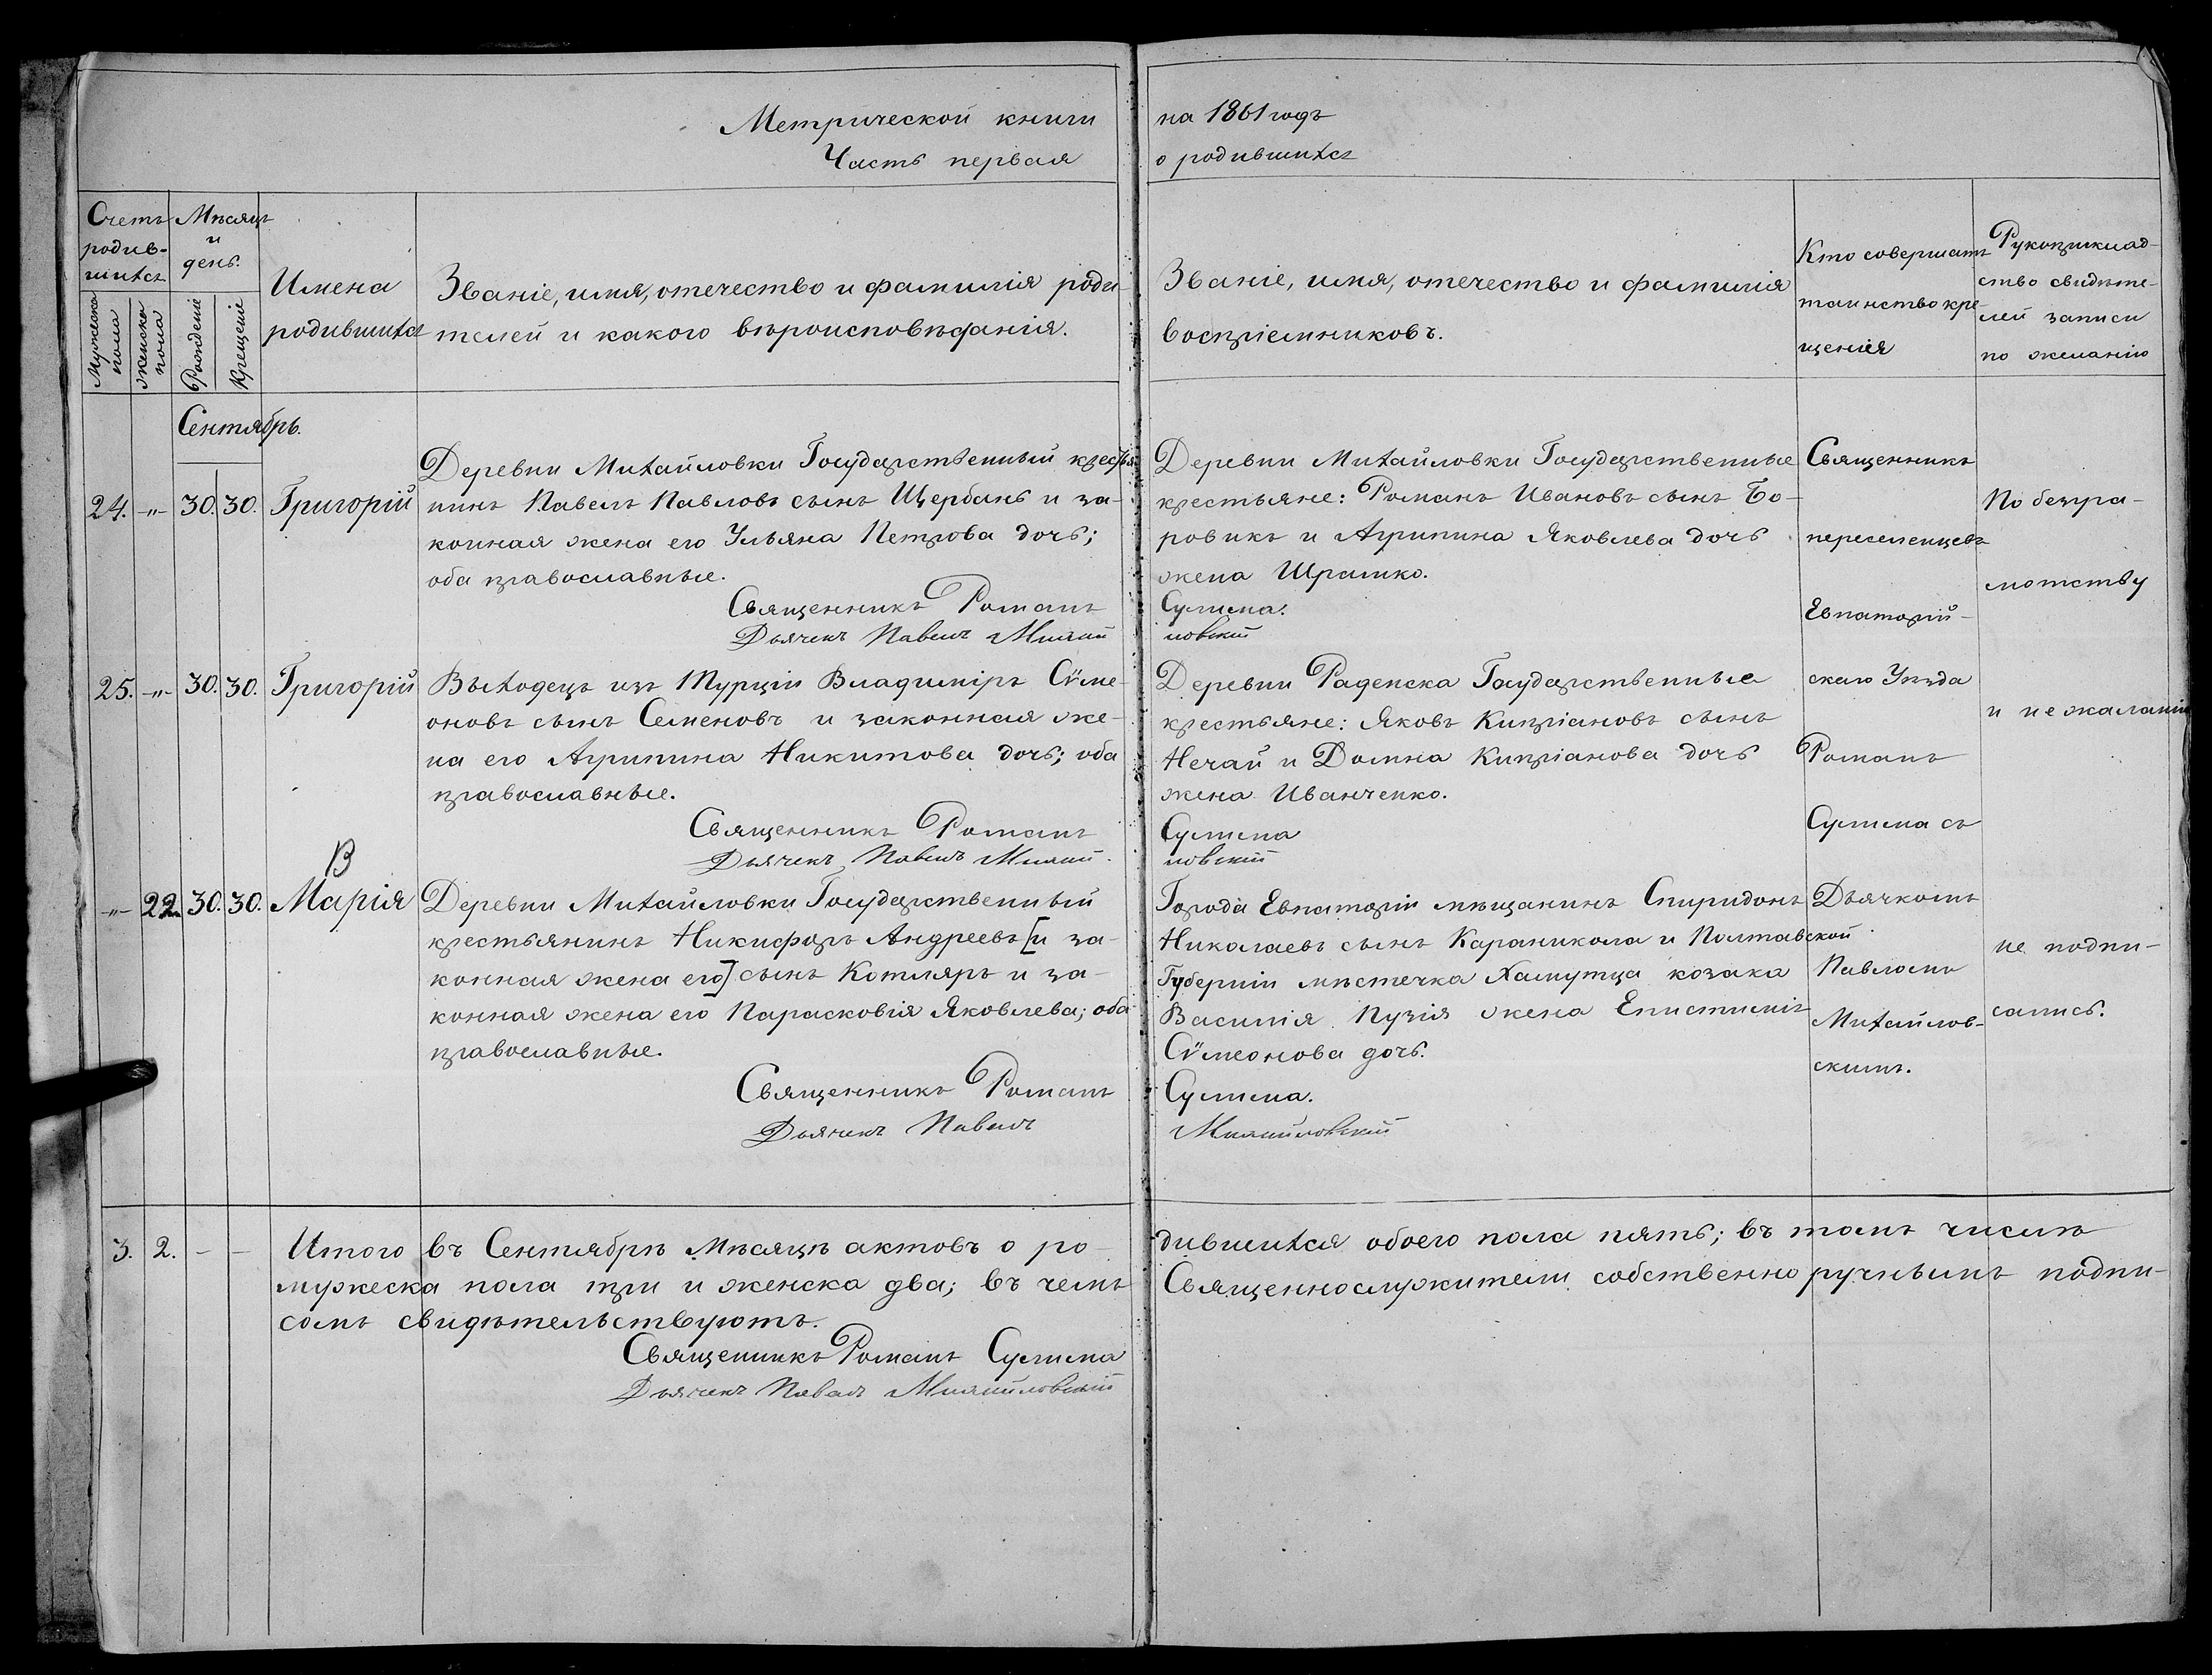 Метрической книги
Часть первая
на 1861 годъ
о родившихся
Счетъ
родив-
шихся
Мужеска
пола
женска
пола
Мѣсяцъ
и
день.
Рожденiе
Крещенiе
Имена
родившихся
Званiе, имя, отечество и фамилiя роди-
телей и какого вѣроисповѣданiя.
Званiе, имя, отечество и фамилiя
воспрiемниковъ.
Кто совершалъ
таинство кре
щенiя
Рукоприклад-
ство свидѣте-
лей записи
по желанiю
Сентябрь.
24. -„- 30. 30. Григорiй
Деревни Михайловки Государственный крестья
нинъ Павелъ Павловъ сынъ Щербань и за-
конная жена его Ульяна Петрова дочь;
оба православные.
Священникъ Романъ
Дьячекъ Павелъ Михай
Деревни Михайловки Государственные
крестьяне: Романъ Ивановъ сынъ Бо-
ровикъ и Агрипина Яковлева дочь
жена Шрамко.
Сулима.
ловскiй
25. -„- 30. 30. Григорiй
Выходецъ изъ Турцiи Владимiръ Сѵме-
оновъ сынъ Семеновъ и законная же-
на его Агрипина Никитова дочь; оба
православные.
Священникъ Романъ
Дьячекъ Павелъ Михай
Деревни Раденска Государственные
крестьяне: Яковъ Кипрiановъ сынъ
Нечай и Домна Кипрiанова дочь
жена Иванченко.
Сулима
ловскiй
В
-„- 22. 30. 30. Марiя
Деревни Михайловки Государственный
крестьянинъ Никифоръ Андреевъ [и за-
конная жена его] сынъ Котляръ и за-
конная жена его Парасковiя Яковлева; оба
православные.
Священникъ Романъ
Дьячекъ Павелъ
Города Евпаторiи мѣщанинъ Спиридонъ
Николаевъ сынъ Караникола и Полтавской
Губернiи мѣстечка Хамутца козака
Василiя Пузiя жена Епистимiя
Сѵмеонова дочь.
Сулима.
Михайловскiй
Священникъ
переселенцевъ
Евпаторiй-
скаго Уѣзда
Романъ
Сулима съ
Дьячкомъ
Павломъ
Михайлов-
скимъ.
По безгра-
мотству
и не желанiю
не подпи-
сались.
3. 2. - - Итого въ Сентябрѣ Мѣсяцѣ актовъ о ро-
дившихся обоего пола пять; въ томъ числѣ
мужеска пола три и женска два; въ чемъ
Священнослужители собственно ручнымъ подпи-
сомъ свидѣтельствуютъ.
Священникъ Романъ Сулима
Дьячекъ Павелъ Михайловскiй